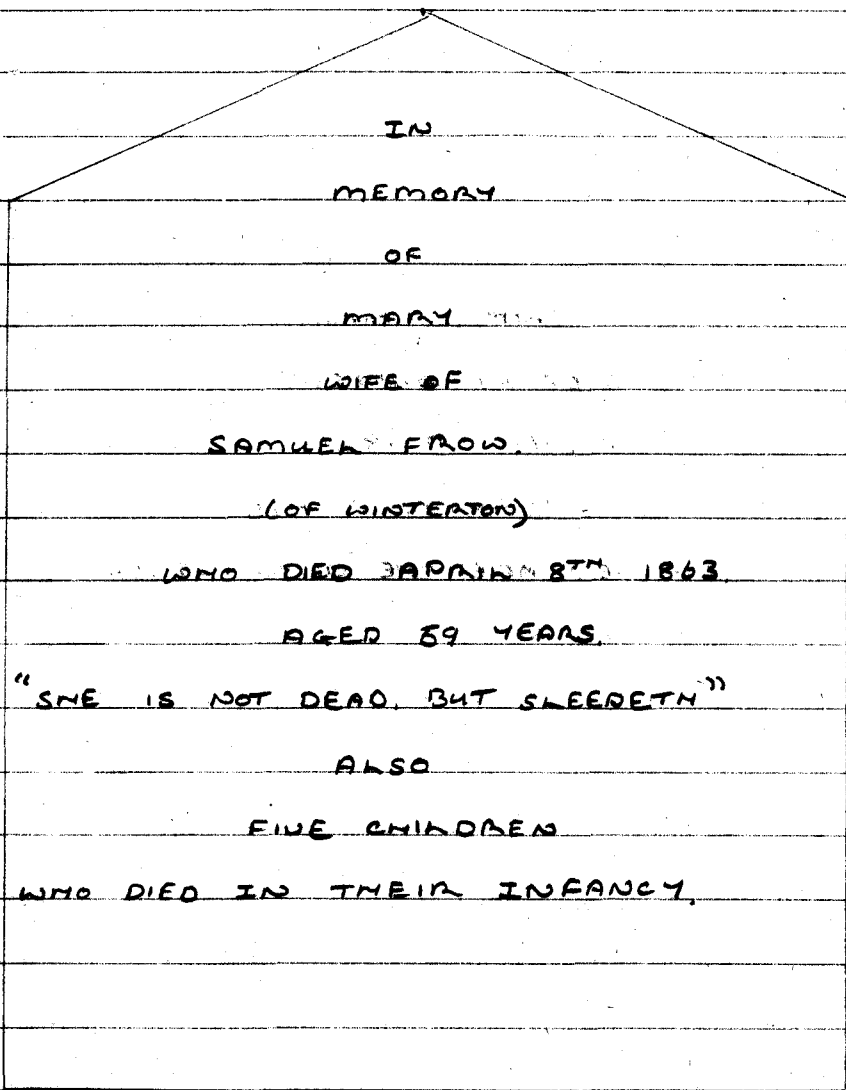 IN
MEMORY
OF
MARY
WIFE OF
SAMUEL FROW.
(OF WINTERTON)
WHO DIED APRIL 8TH 1863.
AGED 59 YEARS.
"SHE IS NOT DEAD, BUT SLEEPETH"
ALSO
FIVE CHILDREN
WHO DIED IN THEIR INFANCY.